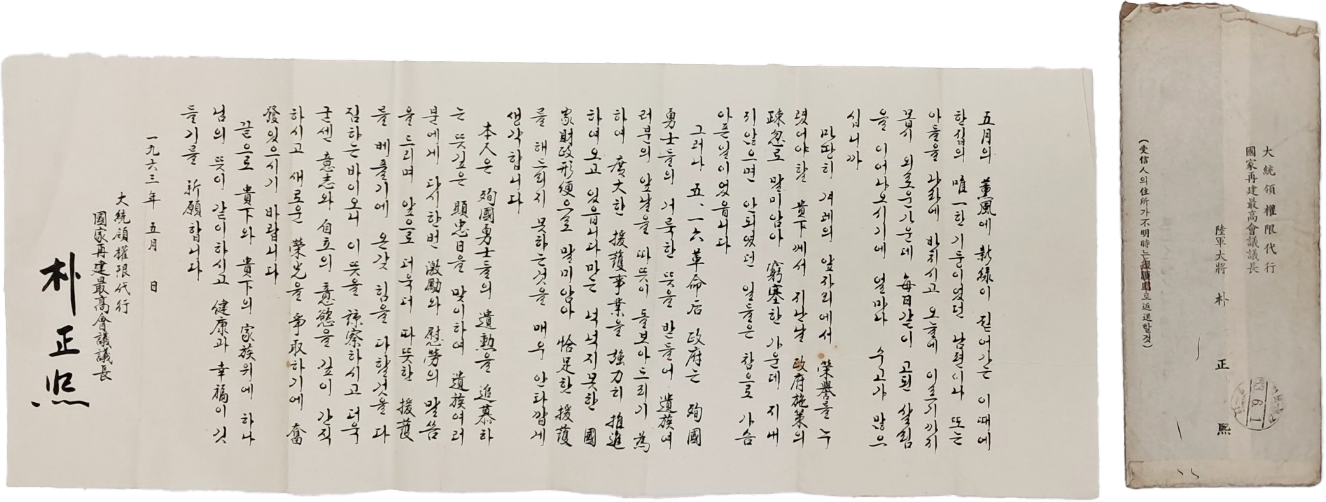 五月의 薰風에 新綠이 짙어가는 이때에
한집의 唯一한 기둥이었던 남편이나 또는
아들을 나라에 바치시고 오늘에 이르기까지
몹시 외로운가운데 每日같이 고된 살림
을 이어나오시기에 얼마나 수고가 많으
십니까
마땅히 겨레의 앞자리에서 榮譽를 누
렸어야할 貴下께서 지난날 政府施策의
疎忽로 말미암아 窮塞한 가운데 지내
지않으면 안되었던 일들은 참으로 가슴
아픈일이었읍니다
그러나 五.一六革命后 政府는 殉國
勇士들의 거룩한 뜻을 받들어 遺族여
러분의 앞날을 따뜻이 돌보아드리기 爲
하여 廣大한 援護事業을 强力히 推進
하여오고 있읍니다만는 넉넉지못한 國
家財政形便으로 말미암아 恰足한 援護
를 해드리지 못하는것을 매우 안타깝게
생각합니다
本人은 殉國勇士들의 遺勳을 追慕하
는 뜻깊은 顯忠日을 맞이하여 遺族여러
분에게 다시한번 激勵와 慰勞의 말씀
을 드리며 앞으로 더욱더 따뜻한 援護
를 베풀기에 온갖 힘을 다할것을 다
짐하는바이오니 이 뜻을 諒察하시고 더욱
굳센 意志와 自立의 意慾을 깊이 간직
하시고 새로운 榮光을 爭取하기에 奮
發있으시기 바랍니다
끝으로 貴下와 貴下의 家族위에 하나
님의 뜻이 같이하시고 健康과 幸福이 깃
들기를 祈願합니다
一九六三年 五月 日
大統領權限代行
國家再建最高會議議長
朴正熙
大統領權限代行
國家再建最高會議議長
陸軍大將 朴正熙
(受信人의住所가不明時는 返送할것)